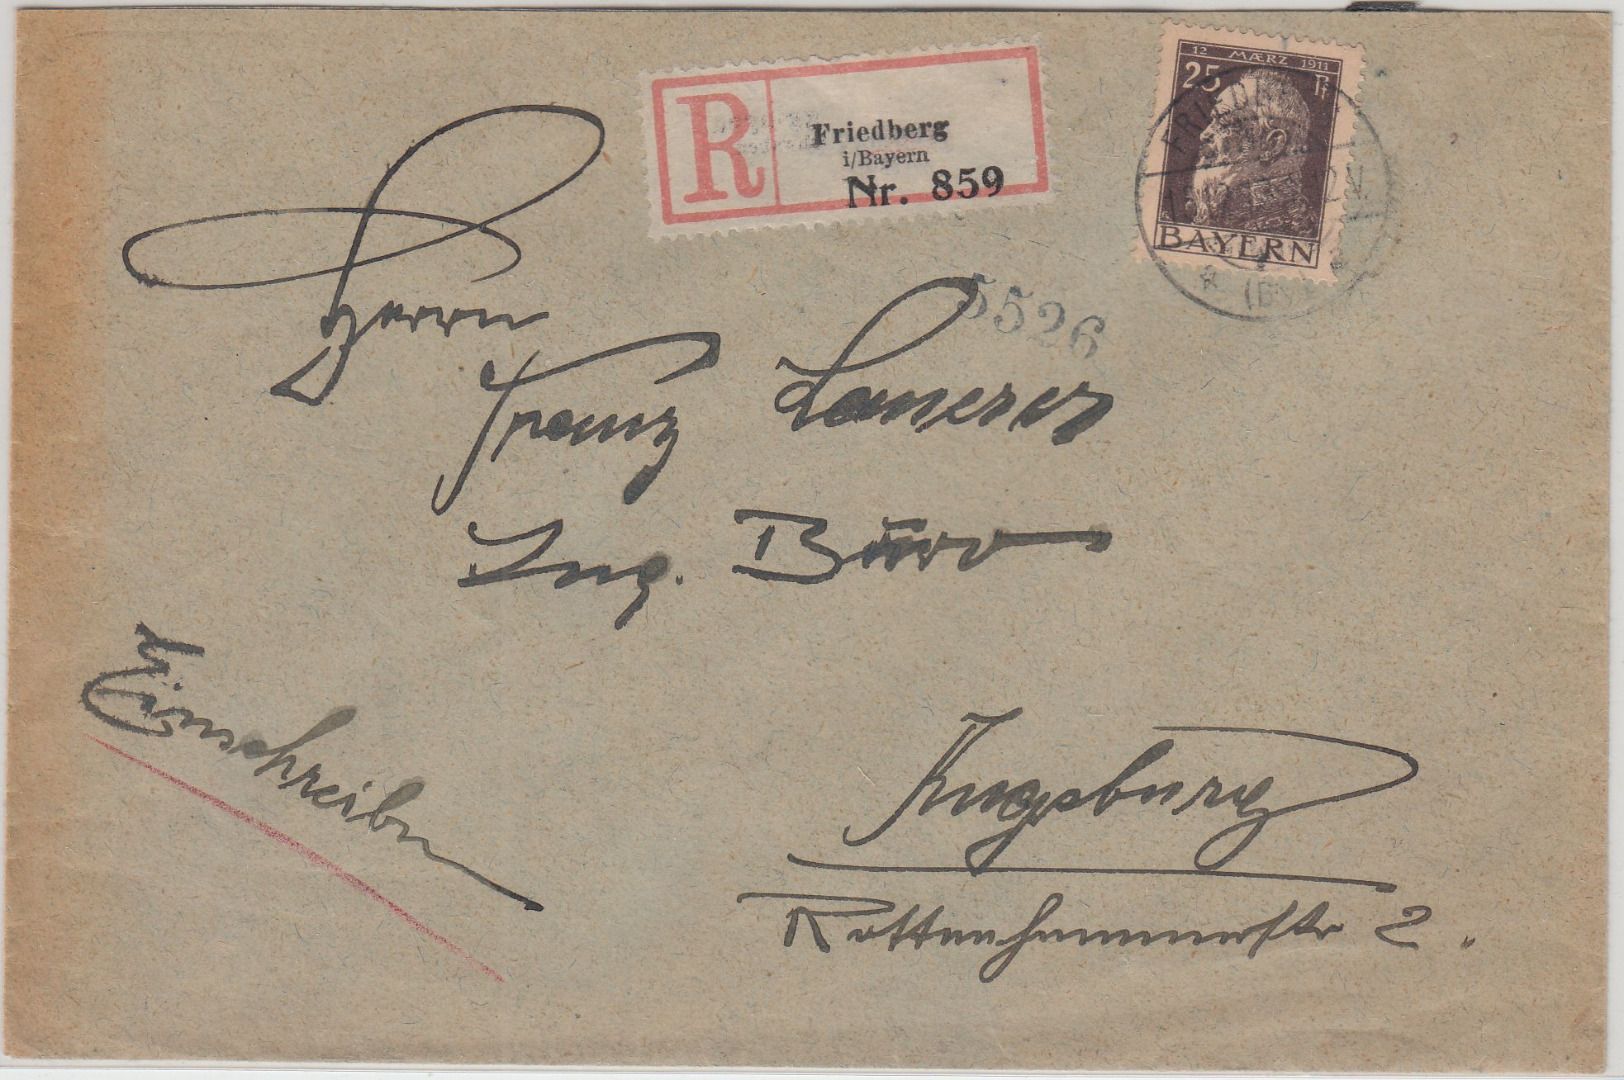 R Friedberg
i/Bayern
Nr. 859
12 MÆRZ 1911
25 Pf
BAYERN
FRIEDB
5526
Herrn
Franz
Ing. Büro
Einschreiben
Augsburg
Rottenhammerstr 2.